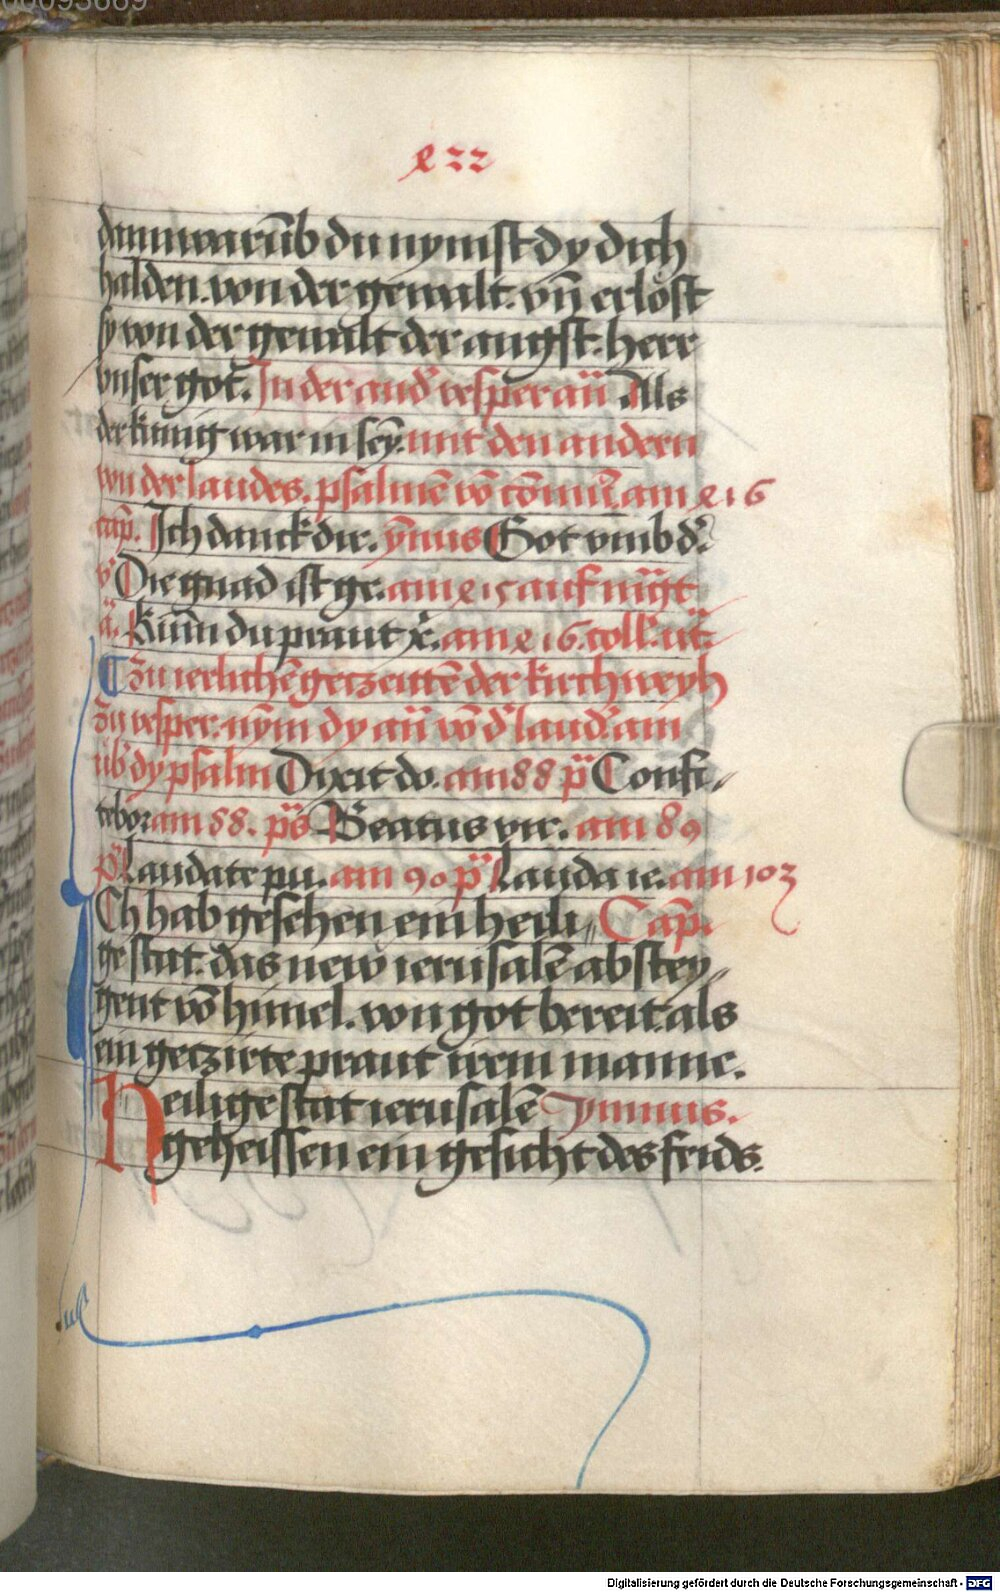 00093669
e 22
dann warūb du nymst dy dich
halden. von der gewalt. vn̄ erlost
sy von der gewalt der angst. herr
vnser got. In der and' vesper an̄ Als
der kunig war in sey. mit den andern
von der laudes. psalmē vō cōmu. am e 16
cap. Ich danck dir. ymnus Got vmb d'.
v' Die gnad ist ge. am e 15 auf mgt
a. Kum̄ du praut x̄. am e 16. coll. ut
Zu ierlichē geczeittē der kirchweyh
zu vesper. nym dy an̄ vō d' laud' am
ūb dy psalm Dixit do. am 88 p̄s Confi
tebor am 88. p̄s Beatus vir. am 89
p̄s Laudate pu. am 90 p̄s Lauda ie. am 103
Ich hab gesehen ein heili Cap.
ge stat. das new ierusalē abstey
gent vō himel. von got bereit. als
ein geczirte praut irem manne.
Heilige stat ierusalē Ymnus.
geheissen ein gesicht des frids.
Digitalisierung gefördert durch die Deutsche Forschungsgemeinschaft - DFG